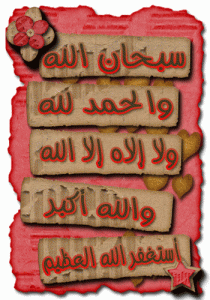 سبحان الله
والحمد لله
ولا إلاه إلا الله
والله أكبر
استغفر الله العظيم